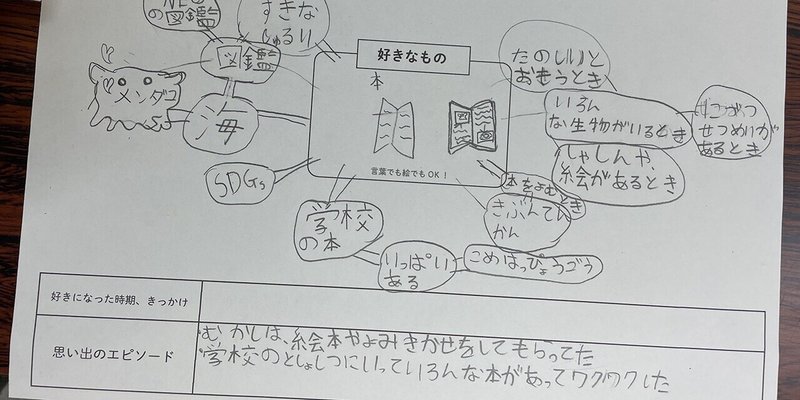 の図鑑
すきな
しゅるい
図鑑
メンダコ
海
SDGs
好きなもの
本
言葉でも絵でもOK！
たのしいと
おもうとき
いろん
な生物がいるとき
せつめいが
あるとき
しゃしんや、
絵があるとき
本をよむとき
きぶんてん
かん
学校
の本
いっぱい
ある
こめはっぴょうごう
好きになった時期、きっかけ
思い出のエピソード
むかしは、絵本やよみきかせをしてもらってた
学校のとしょしつにいっていろんな本があってワクワクした